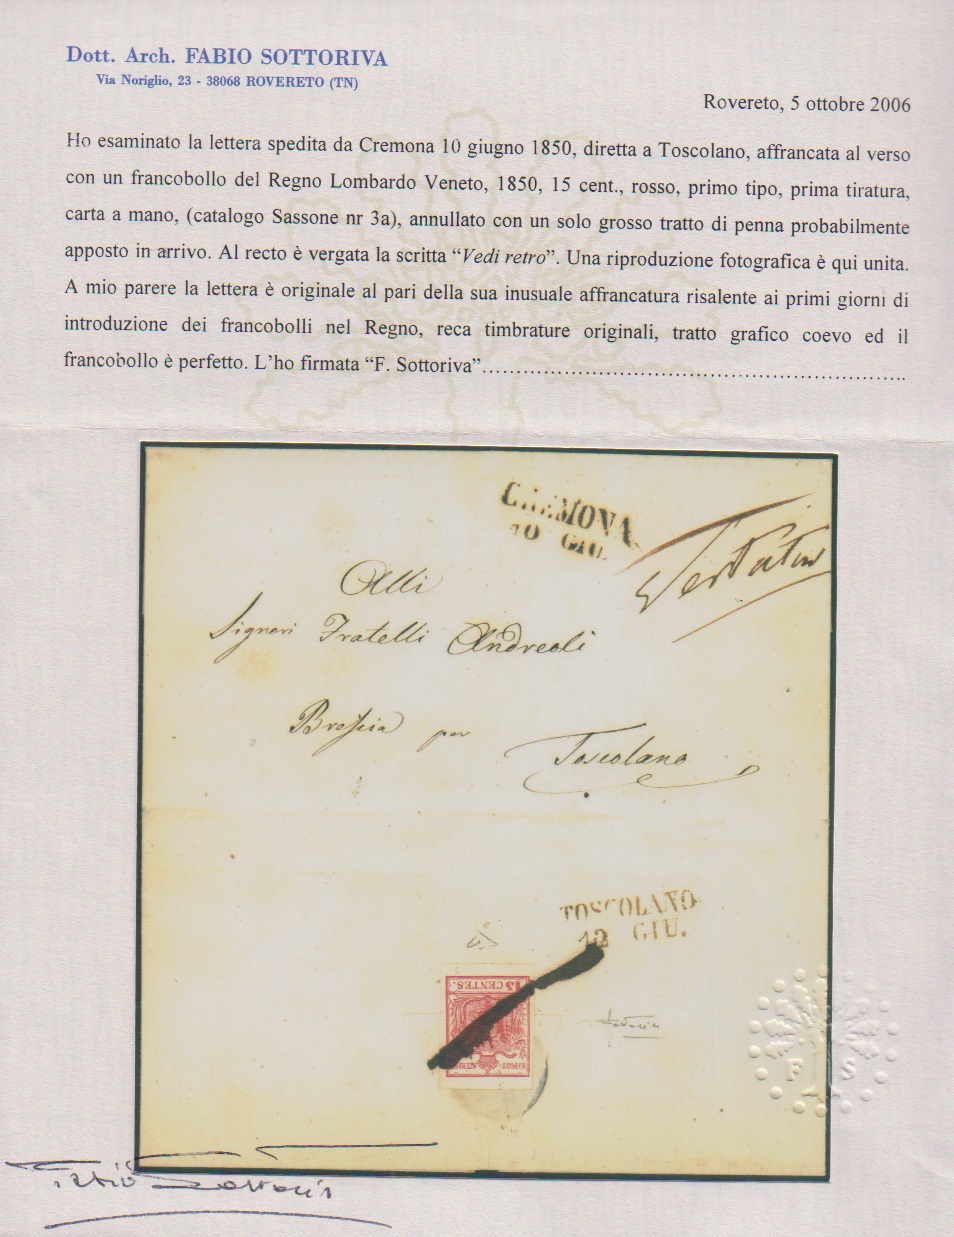 Dott. Arch. FABIO SOTTORIVA
Via Noriglio, 23 - 38068 ROVERETO (TN)
Rovereto, 5 ottobre 2006
Ho esaminato la lettera spedita da Cremona 10 giugno 1850, diretta a Toscolano, affrancata al verso
con un francobollo del Regno Lombardo Veneto, 1850, 15 cent., rosso, primo tipo, prima tiratura,
carta a mano, (catalogo Sassone nr 3a), annullato con un solo grosso tratto di penna probabilmente
apposto in arrivo. Al recto è vergata la scritta “Vedi retro”. Una riproduzione fotografica è qui unita.
A mio parere la lettera è originale al pari della sua inusuale affrancatura risalente ai primi giorni di
introduzione dei francobolli nel Regno, reca timbrature originali, tratto grafico coevo ed il
francobollo è perfetto. L’ho firmata “F. Sottoriva”…………………………………………………….
CREMONA
10 GIU.
Alli
Signori Fratelli Andreoli
Brescia per Toscolano
TOSCOLANO
12 GIU.
15 CENTES.
F S